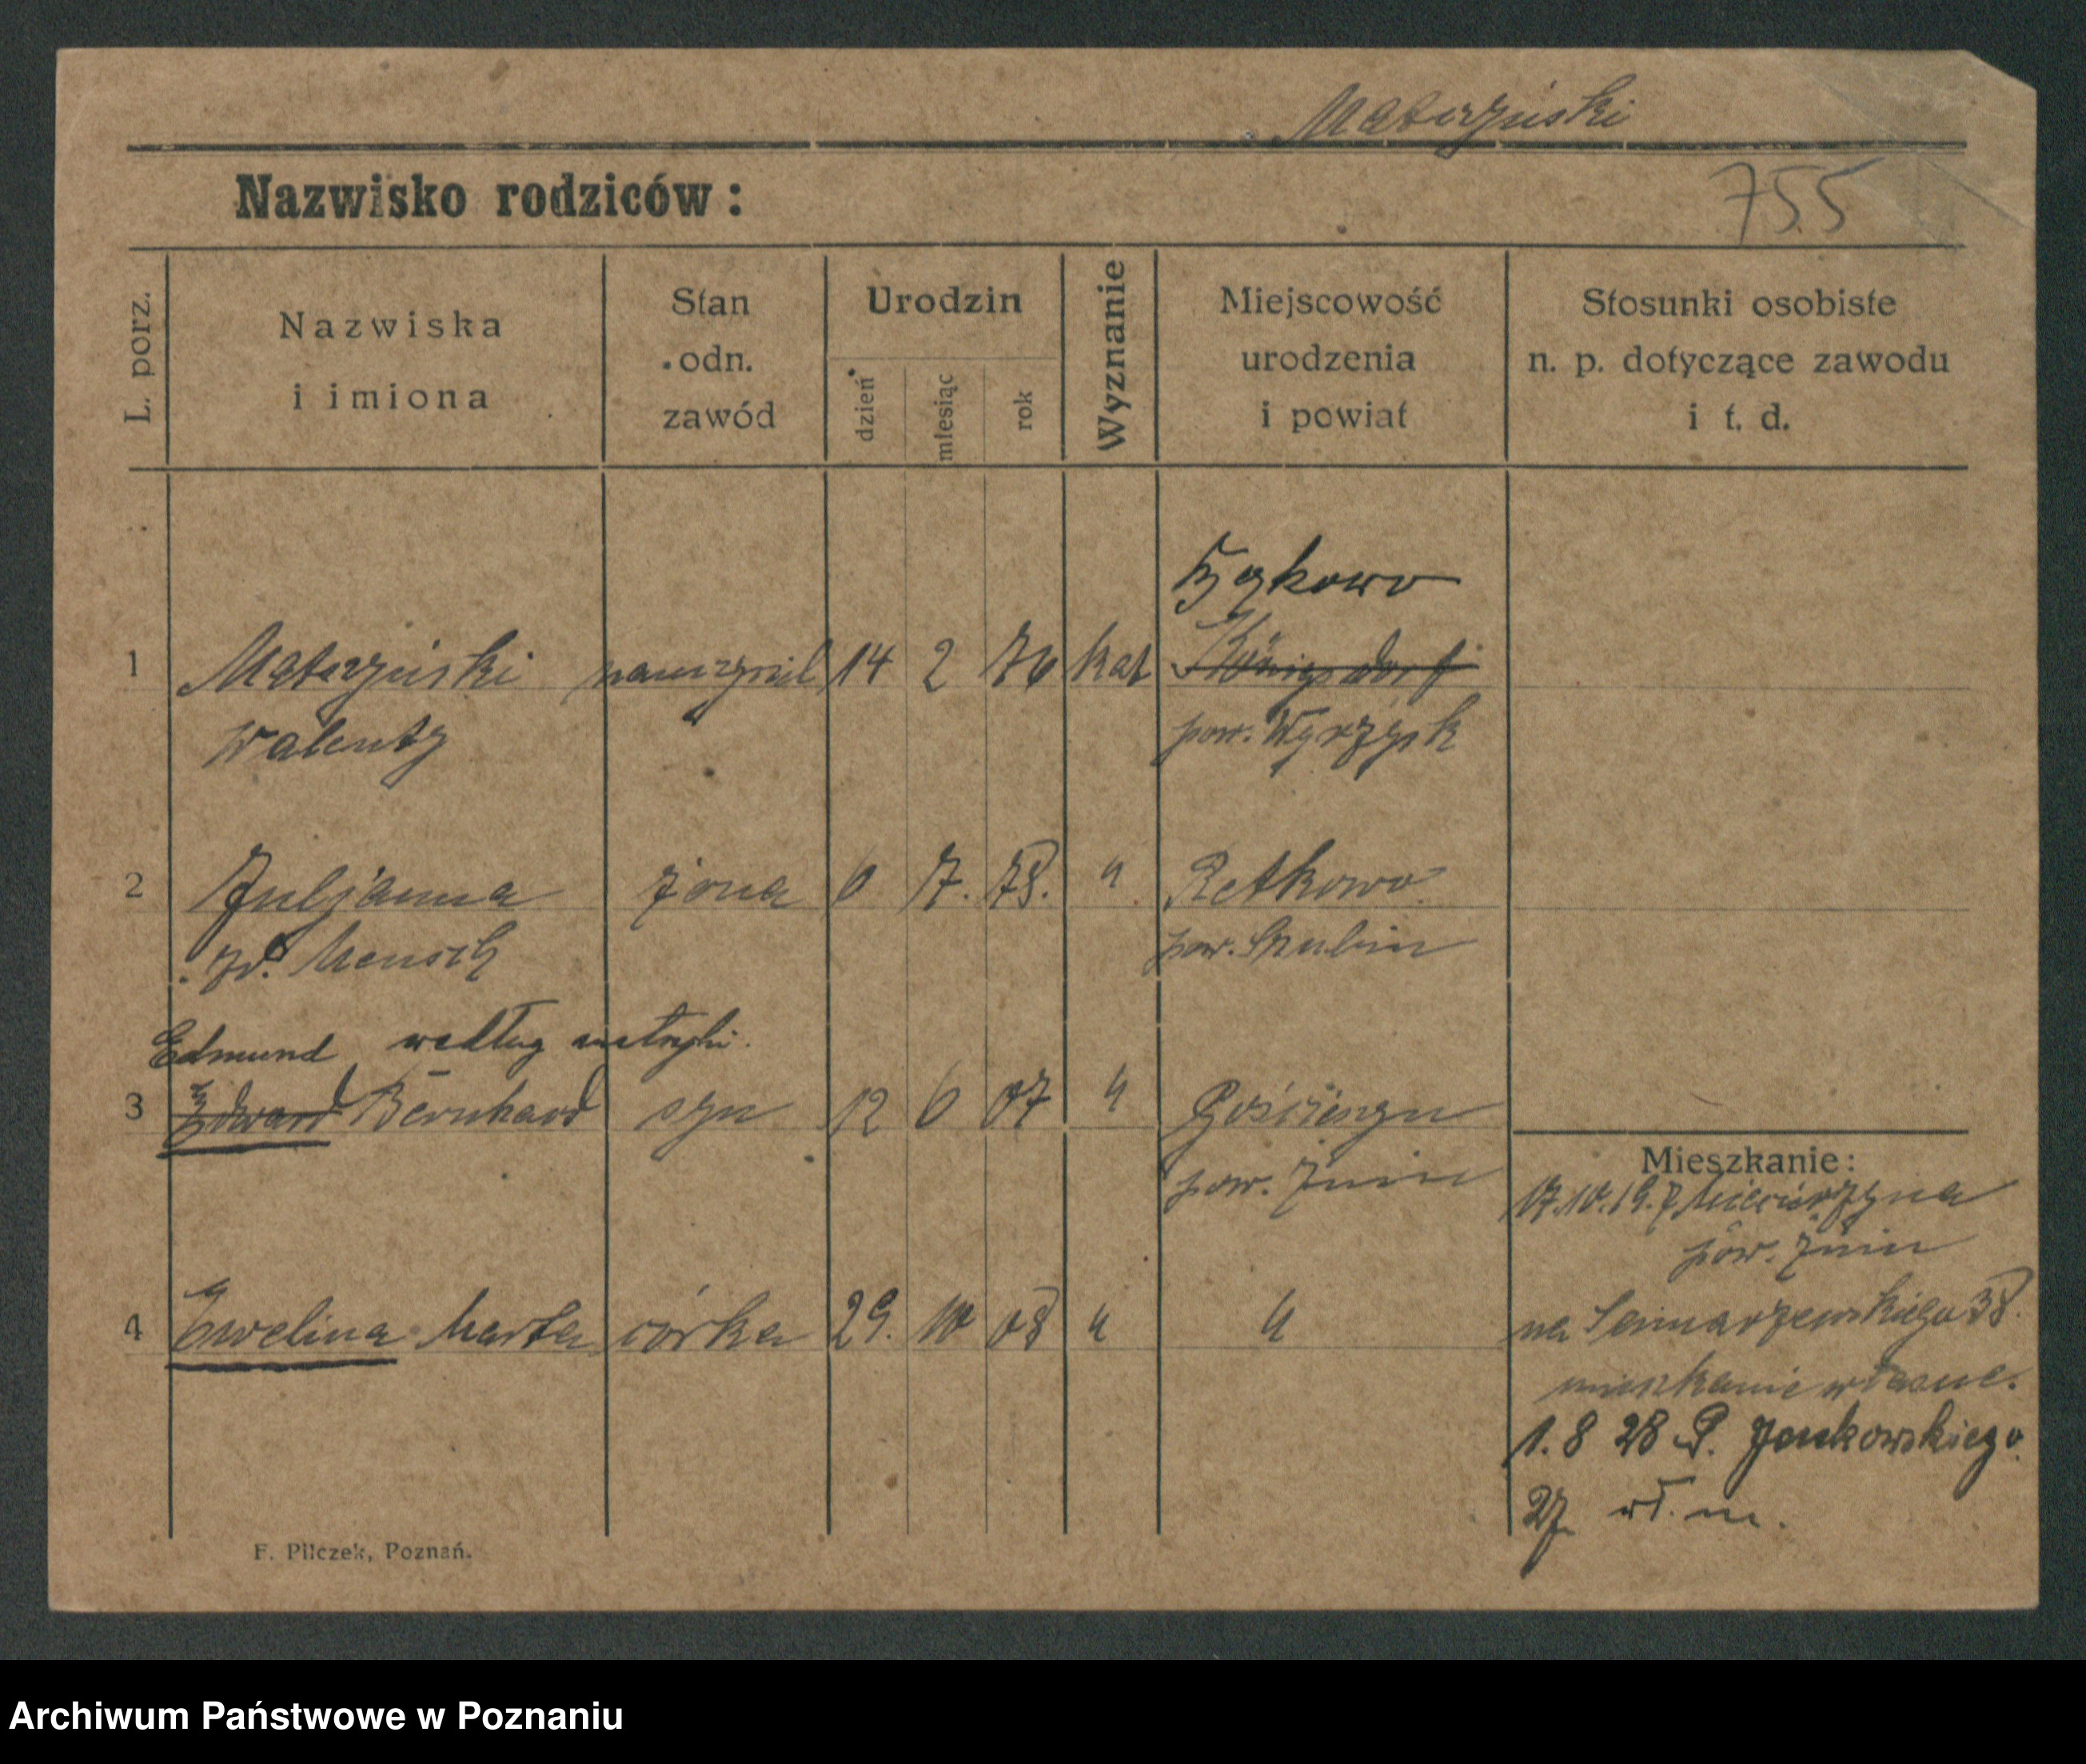 Matuszyński
755
Nazwisko rodziców:
L. porz.
Nazwiska
i imiona
Stan
odn.
zawód
Urodzin
dzień
miesiąc
rok
Wyznanie
Miejscowość
urodzenia
i powiat
Stosunki osobiste
n. p. dotyczące zawodu
i t. d.
1 nauczyciel 14 2 76 kat Königsdorf
Walenty pow. Wyrzysk
2 Juljanna żona 6 7. 78. " Retkowo
Mensch pow. Szubin
Edmund według metryki.
3 Edward Bernhard syn 12 6 07 "
pow. Żnin
Mieszkanie:
17.10.19.
pow. Żnin
4 Ewelina Marta córka 29. 10 08 " "
na Semmarzewskiego 38.
mieszkanie własne.
1. 8 28 P. Jackowskiego
27 wł. m.
F. Pilczek, Poznań.
Archiwum Państwowe w Poznaniu